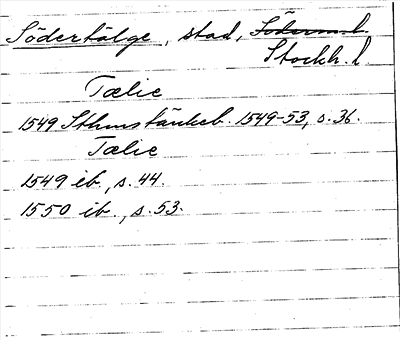 Södertälge, stad, Söderm. l.
Stockh. l.
Tælie
1549 Sthms tänkeb. 1549-53, s. 36.
Tælie
1549 ib., s. 44.
1550 ib., s. 53.